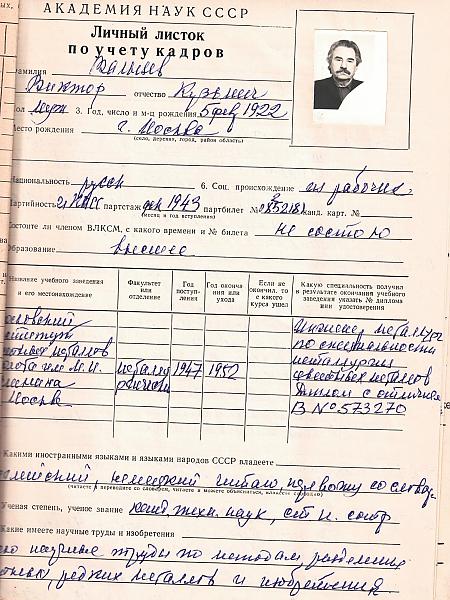 АКАДЕМИЯ НАУК СССР
Личный листок
по учету кадров
Фамилия
Виктор отчество Кузьмич
Пол муж 3. Год, число и м-ц рождения 5 фев 1922
Место рождения г. Москва
(село, деревня, город, район, область)
Национальность русск 6. Соц. происхождение из рабочих
Партийность чл КПСС партстаж дек 1943 партбилет № канд. карт. №
(месяц и год вступления)
Состоите ли членом ВЛКСМ, с какого времени и № билета не состою
Образование высшее
Название учебного заведения и его местонахождение
Факультет или отделение
Год поступления
Год окончания или ухода
Если не окончил, то с какого курса ушел
Какую специальность получил в результате окончания учебного заведения указать № диплома или удостоверения
осковский Инженер металлург
нститут по специальности
етных металлов металлургия
олота им. М.И. металлу 1947 1952 цветных металлов
Диплом с отличием
Москва В № 573270
Какими иностранными языками и языками народов СССР владеете
немецкий читаю, перевожу со слова
(читаете и переводите со словарем, читаете и можете объясняться, владеете свободно)
Ученая степень, ученое звание канд. техн. наук, ст. н. сотр
Какие имеете научные труды и изобретения
научные труды по методам разделения
редких металлов и изобретения